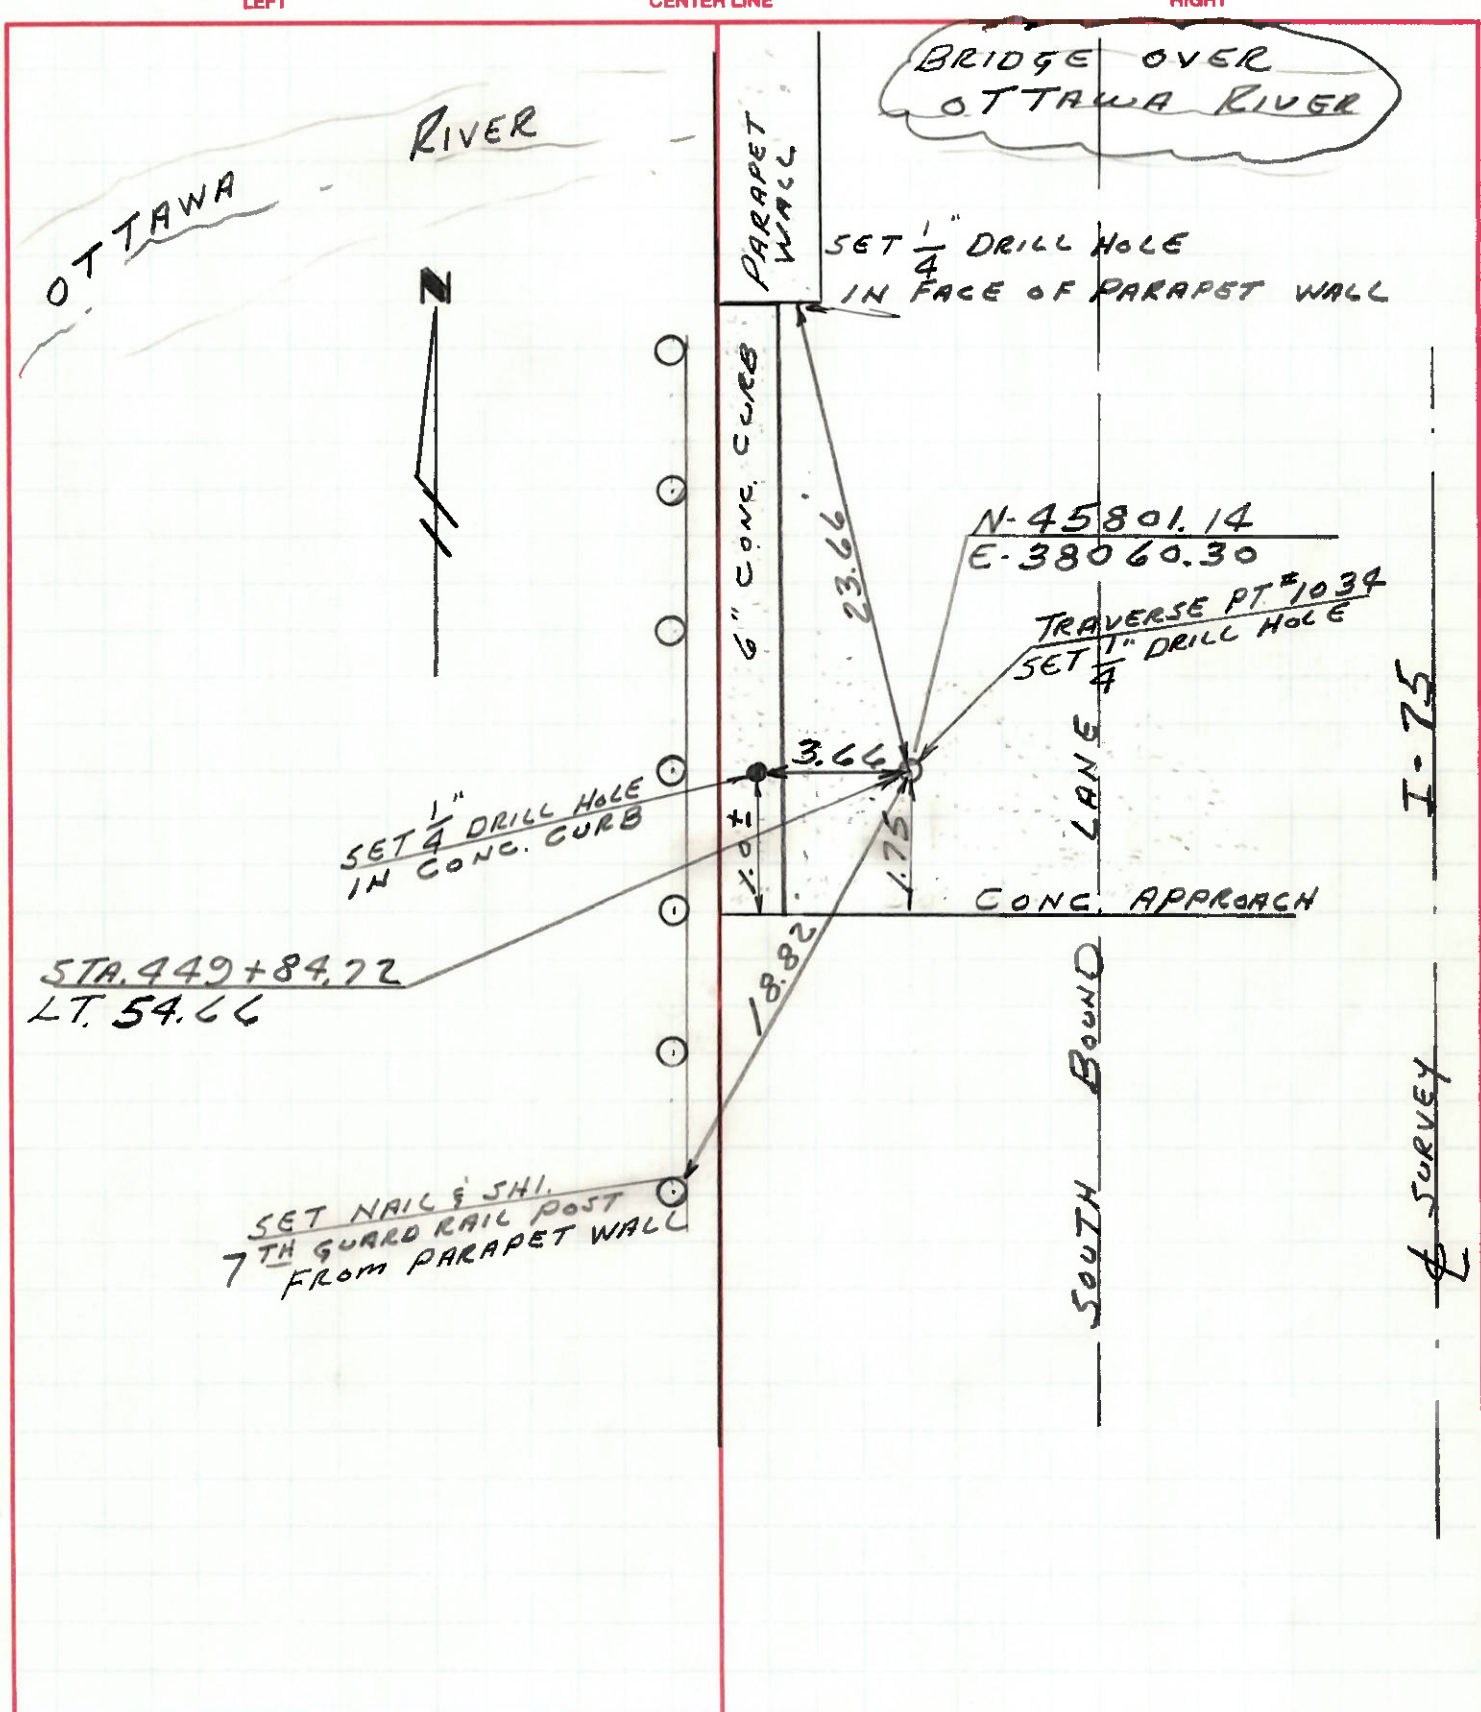 LEFT
CENTER LINE
RIGHT
BRIDGE OVER
OTTAWA RIVER
OTTAWA RIVER
PARAPET
WALL
SET 1/4" DRILL HOLE
IN FACE OF PARAPET WALL
N
6" CONC. CURB
23.66'
N-45801.14
E-38060.30
TRAVERSE PT #1034
SET 1/4" DRILL HOLE
3.66
SET 1/4" DRILL HOLE
IN CONC. CURB
1.0±
1.75
CONC. APPROACH
STA. 449+84.72
LT. 54.66
18.82'
SET NAIL & SHI.
7TH GUARD RAIL POST
FROM PARAPET WALL
SOUTH BOUND LANE
I-75
℄ SURVEY